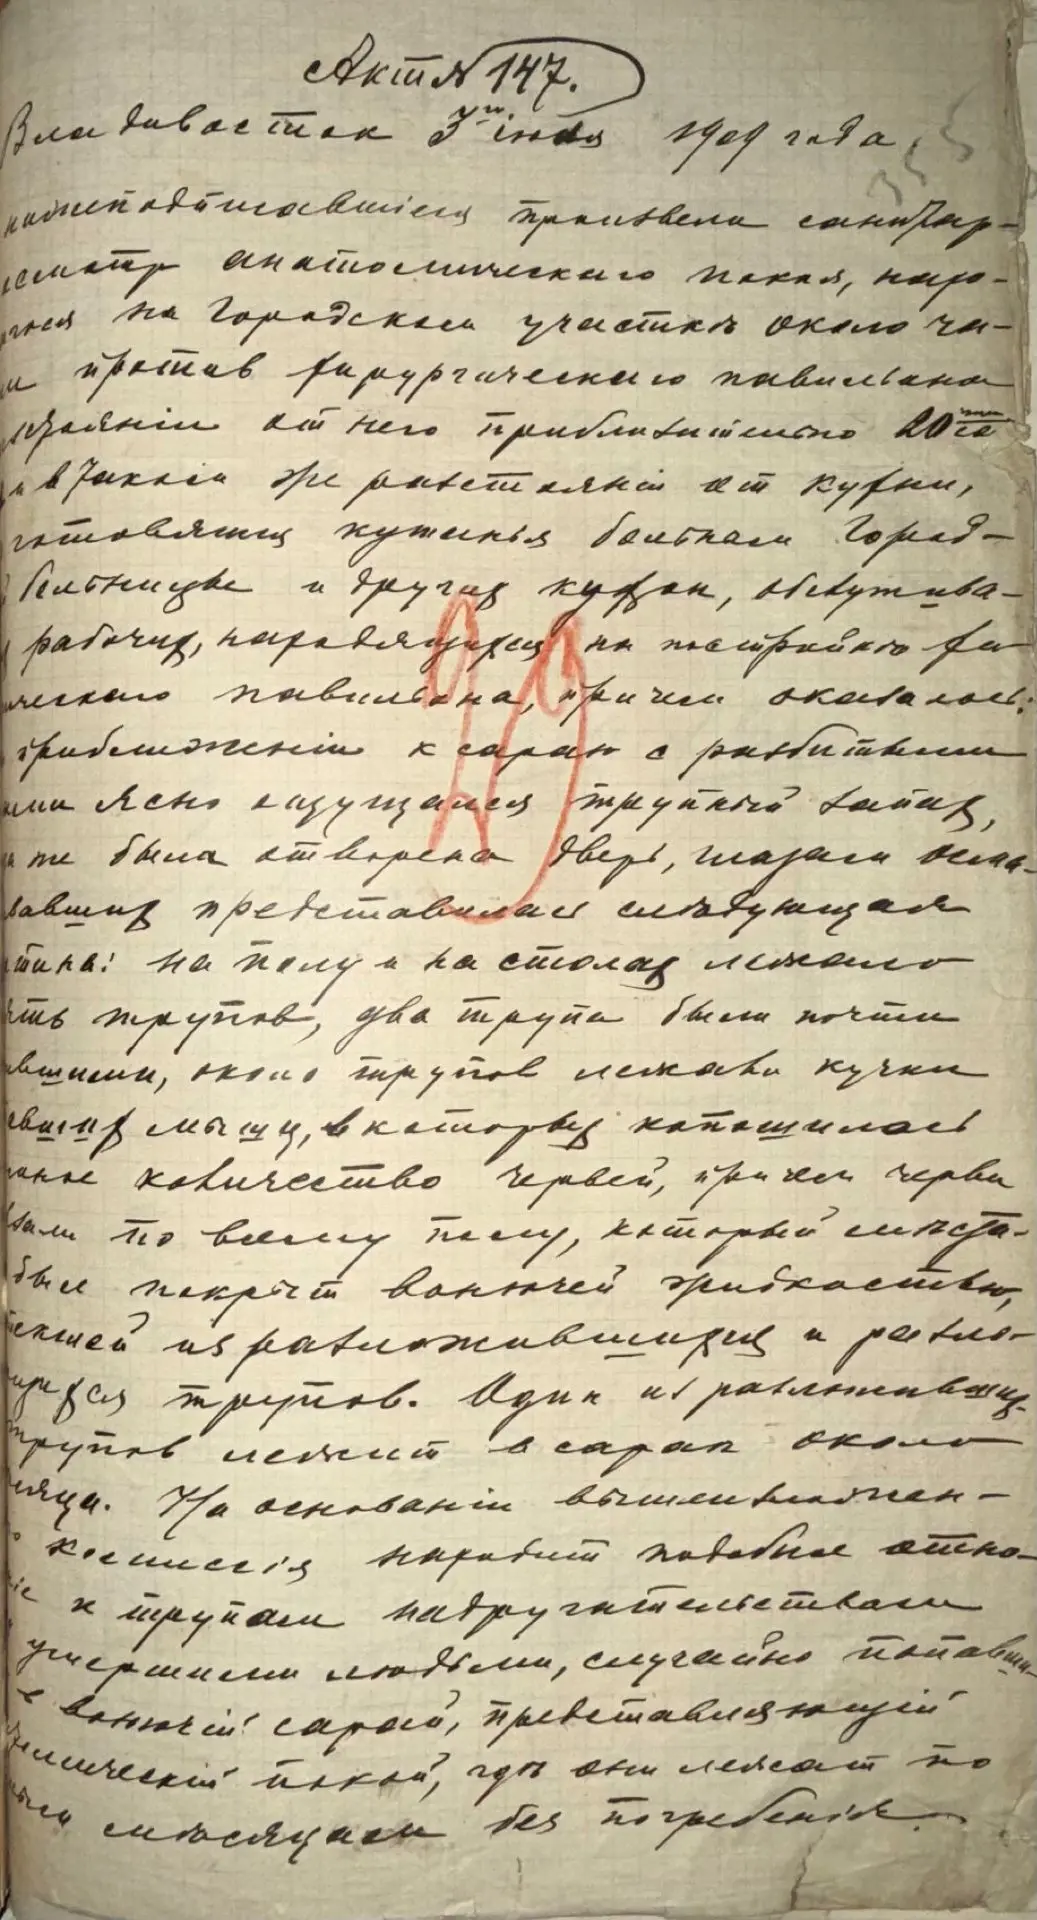 Акт № 147.
Владивосток 3го июля 1909 года,
нижеподписавшіеся произвели санитар-
осмотр анатомическаго покоя, нахо-
на Городском участкѣ около
против хирургическаго павильона
от него приблизительно 20ти
и в таком же разстояніи от кухни,
готовятся кушанья больным Город-
больницы и других кухон, обслужива-
рабочих, находящихся на постройкѣ хи-
павильона, причем оказалось:
приближеніи к сараю с разбитыми
ясно ощущался трупный запах,
же была отворена дверь, глазам осма-
представилась слѣдующая
на полу и на столах лежало
трупов, два трупа были почти
около трупов лежали кучки
мышц, в которых копошилось
количество червей, причем черви
по всему полу, который мѣста-
был покрыт вонючей жидкостью,
из разложившихся и разла-
трупов. Один из разложивших-
трупов лежит в сарае около
На основаніи вышеизложен-
комиссія находит подобное отно-
к трупам надругательством
умершими людьми, случайно попавши-
в вонючій сарай, представляющій
покой, гдѣ они лежат по
мѣсяцам без погребенія.